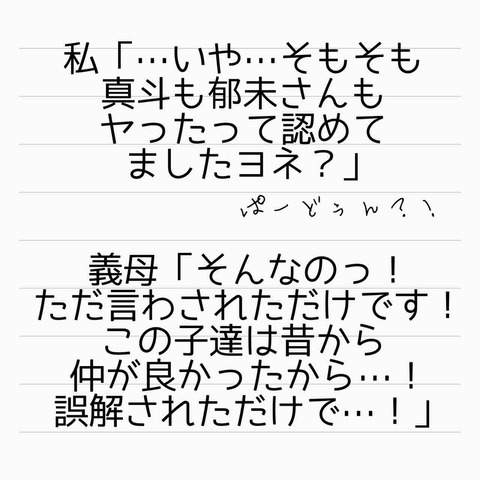 私「…いや…そもそも
真斗も郁未さんも
ヤったって認めて
ましたヨネ？」
ぱーどぅん？！
義母「そんなのっ！
ただ言わされただけです！
この子達は昔から
仲が良かったから…！
誤解されただけで…！」